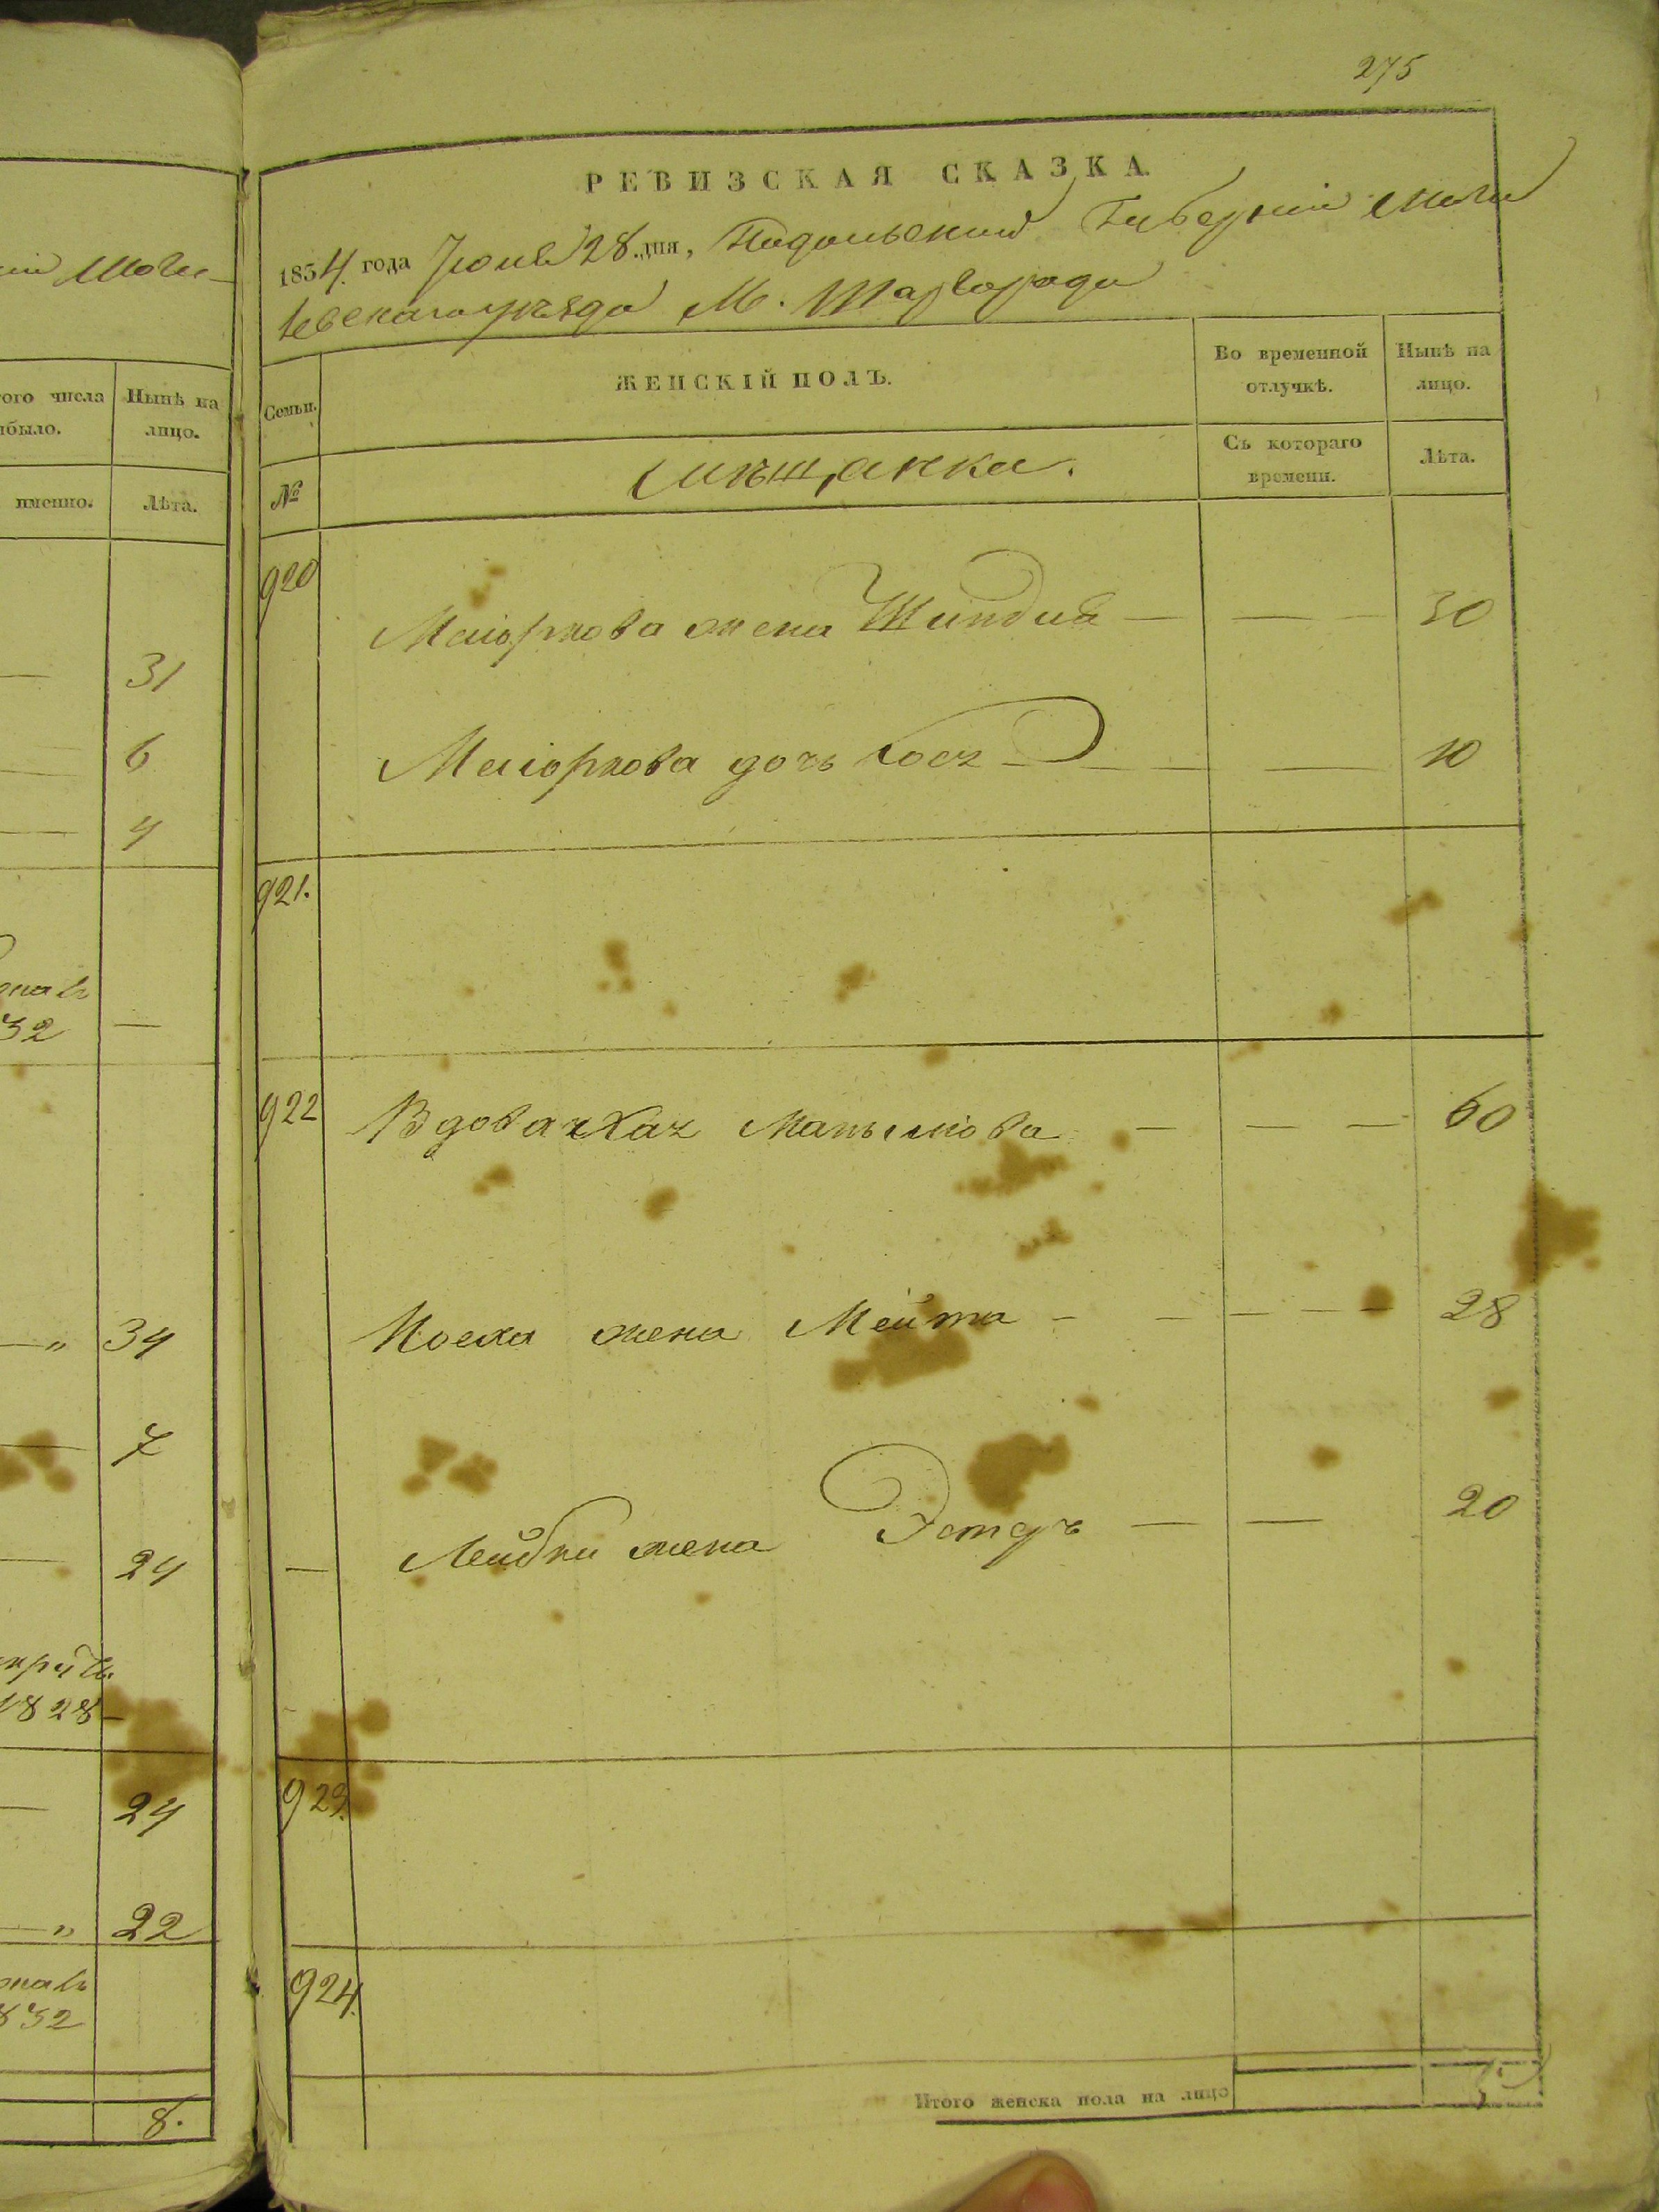 275
ній Моги-
того числа
Нынѣ на
лицо.
было.
именно.
Лѣта.
31
6
4
32
—
34
7
24
1828
24
22
832
8.
РЕВИЗСКАЯ СКАЗКА.
1834. года Іюня 28. дня, Подольской Губерніи Моги
левскаго уѣзда М. Шаргорода
Семьи.
ЖЕНСКІЙ ПОЛЪ.
Во временной
отлучкѣ.
Нынѣ на
лицо.
№
Мѣщанки.
Съ котораго
времени.
Лѣта.
920
Меіоркова жена Шиндля — — — 30
Меіоркова дочь — — 10
921.
922 Вдова Манышова — — — 60
Иоска жена Мейта — — — — 28
— Лейбки жена Эстръ — — 20
923.
924.
Итого женска пола на лицо 5